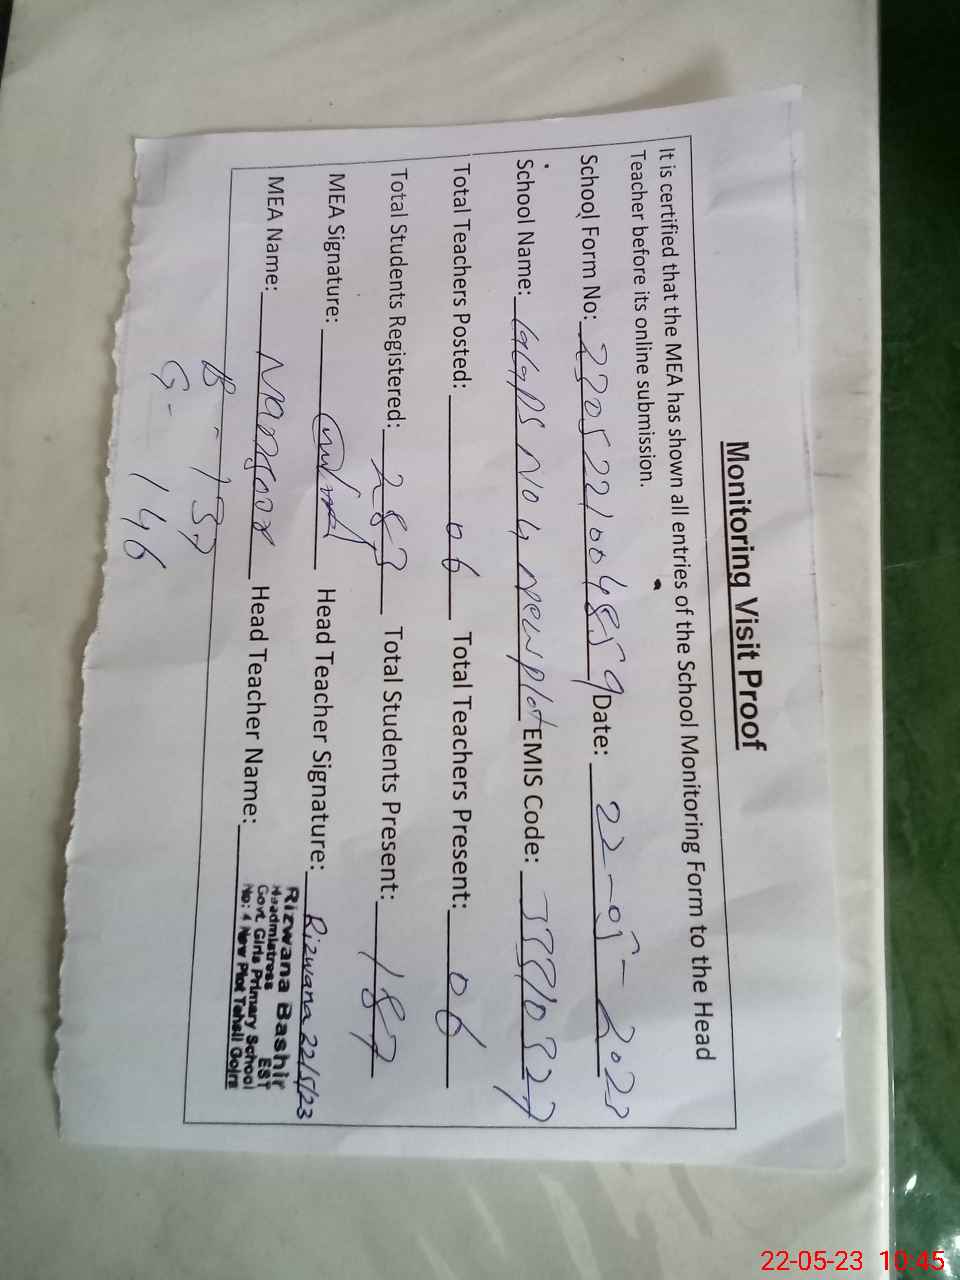 Monitoring Visit Proof
It is certified that the MEA has shown all entries of the School Monitoring Form to the Head
Teacher before its online submission.
School Form No: 2305221004859 Date: 22-05-2023
School Name: GGPS No 4 New plot EMIS Code: 33310327
Total Teachers Posted: 06 Total Teachers Present: 06
Total Students Registered: 283 Total Students Present: 187
MEA Signature: Head Teacher Signature: Rizwana 22/5/23
MEA Name: Mansoor Head Teacher Name:
Rizwana Bashir
Headmistress EST
Govt. Girls Primary School
No: 4 New Plot Tehsil Gojra
B - 137
G - 146
22-05-23 10:45